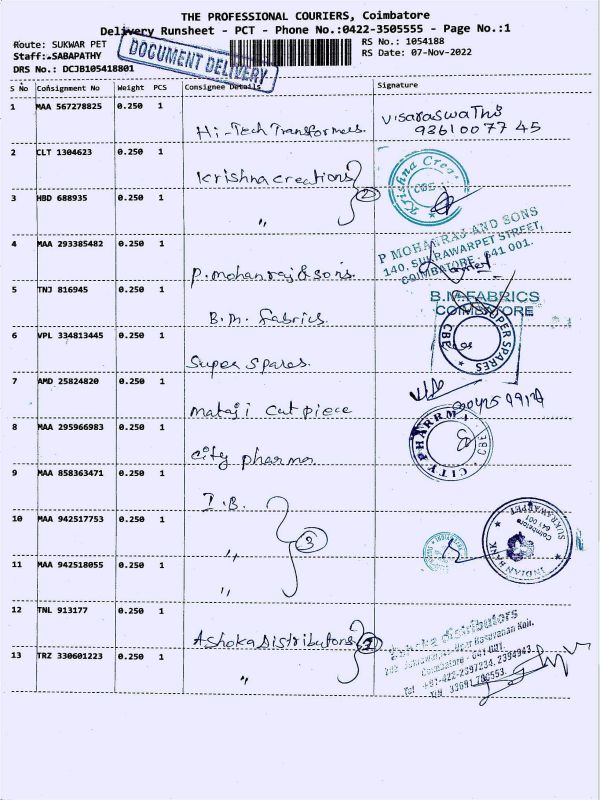 THE PROFESSIONAL COURIERS, Coimbatore
Delivery Runsheet - PCT - Phone No.:0422-3505555 - Page No.:1
Route: SUKWAR PET
RS No.: 1054188
Staff:-SABAPATHY
RS Date: 07-Nov-2022
DRS No.: DCJB105418801
DOCUMENT DELIVERY
S No Consignment No Weight PCS Consignee Details Signature
1 MAA 567278825 0.250 1
Hi-Tech Transformers.
V.Saraswathi
93610 077 45
2 CLT 1304623 0.250 1
Krishna Creations
2
Krishna Crea
CBE
3 HBD 688935 0.250 1
"
4 MAA 293385482 0.250 1
P. Mohanraj & sons.
P MOHANRAJ AND SONS
140, SUKRAWARPET STREET,
COIMBATORE - 641 001.
5 TNJ 816945 0.250 1
B.M. fabrics
B.M.FABRICS
COIMBATORE
6 VPL 334813445 0.250 1
Super Spares.
SUPER SPARES
CBE
7 AMD 25824820 0.250 1
Mataji cut piece
8 MAA 295966983 0.250 1
City pharma.
CITY PHARRMA
CBE
9 MAA 858363471 0.250 1
I.B.
10 MAA 942517753 0.250 1
"
3
INDIAN BANK
SUKRAWARPET
Coimbatore
641 001
11 MAA 942518055 0.250 1
"
12 TNL 913177 0.250 1
Ashoka Distributors
2
distributors
Coimbatore - 641 001.
Tel +91-422-2397234, 2394943
13 TRZ 330601223 0.250 1
"